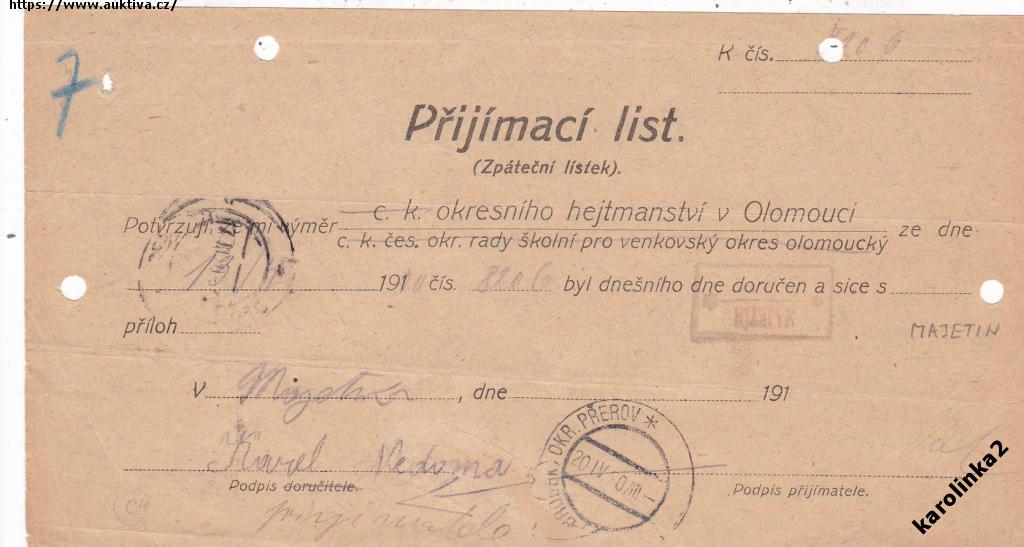 https://www.auktiva.cz/
7
K čís. 8206
Přijímací list.
(Zpáteční lístek).
c. k. okresního hejtmanství v Olomouci
Potvrzuji, že mi výměr ze dne
c. k. čes. okr. rady školní pro venkovský okres olomoucký
1910 čís. 8206 byl dnešního dne doručen a sice s
příloh
MAJETIN
V Majetín, dne 191
Karel Vedoma
Podpis doručitele.
Podpis přijímatele.
přijímatele
OKR. PŘEROV *
20.IV
CH
karolinka2